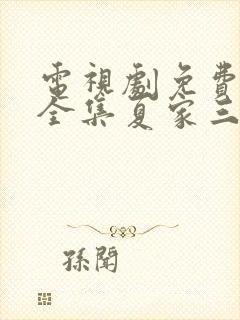 電視劇免費
全集夏家三
孫聞